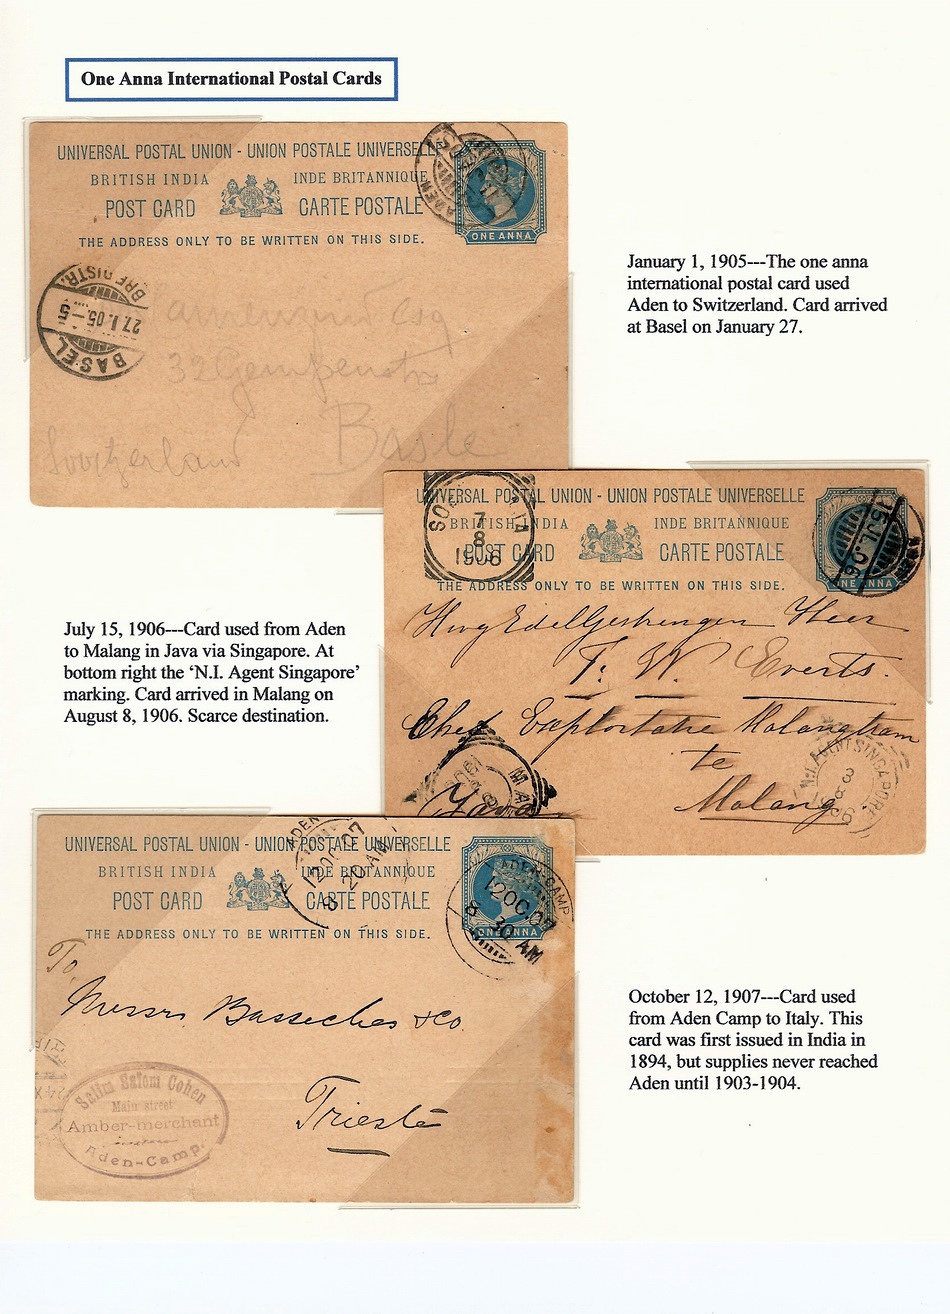 One Anna International Postal Cards
UNIVERSAL POSTAL UNION - UNION POSTALE UNIVERSELLE
BRITISH INDIA INDE BRITANNIQUE
POST CARD CARTE POSTALE
THE ADDRESS ONLY TO BE WRITTEN ON THIS SIDE.
ADEN
ONE ANNA
BRFDISTR.
27.I.05.-5
BASEL
Esq
32 Gempenstr
Basle
Switzerland
January 1, 1905---The one anna
international postal card used
Aden to Switzerland. Card arrived
at Basel on January 27.
UNIVERSAL POSTAL UNION - UNION POSTALE UNIVERSELLE
BRITISH INDIA INDE BRITANNIQUE
POST CARD CARTE POSTALE
THE ADDRESS ONLY TO BE WRITTEN ON THIS SIDE.
7
8
1906
15 JL 06
ONE ANNA
HoogEdelGestrengen Heer
F. W. Everts.
Chef Exploitatie Malangtram
te
Malang
Java
N.I. AGENT SINGAPORE
July 15, 1906---Card used from Aden
to Malang in Java via Singapore. At
bottom right the ‘N.I. Agent Singapore’
marking. Card arrived in Malang on
August 8, 1906. Scarce destination.
UNIVERSAL POSTAL UNION - UNION POSTALE UNIVERSELLE
BRITISH INDIA INDE BRITANNIQUE
POST CARD CARTE POSTALE
THE ADDRESS ONLY TO BE WRITTEN ON THIS SIDE.
ADEN
12 OC 07
8 20 AM
ADEN-CAMP
12 OC 07
8 30 AM
ONE ANNA
To
Messrs Basseches & Co.
Trieste
Salim Salom Cohen
Main street
Amber-merchant
Aden-Camp.
October 12, 1907---Card used
from Aden Camp to Italy. This
card was first issued in India in
1894, but supplies never reached
Aden until 1903-1904.